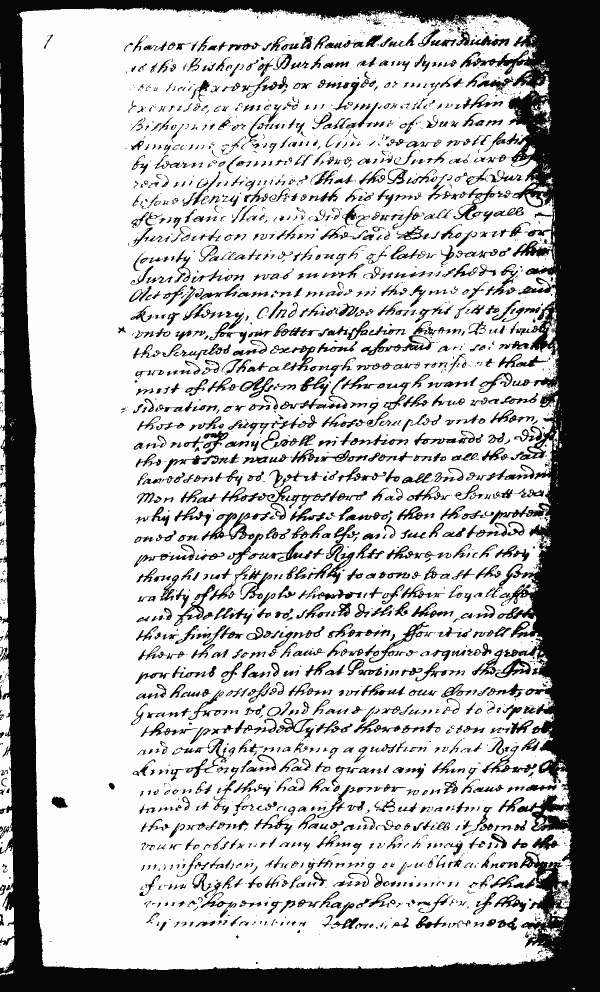 Charter that wee should have all such Jurisdiction
as the Bishops of Durham at any tyme heretofore
exercised, or enioyed, or might have
exercised, or enioyed in temporalls within
Bishoprick or County Pallatine of Durham
kingdome of England, And wee are well
by learned Councell here, and Such as are
read in Antiquities That the Bishops of
before Henry the seventh his tyme heretofore
of England Had, and did Exercise all Royall
Jurisdiction within the said Bishoprick or
County Pallatine though of later yeares their
Jurisdiction was much diminished by an
Act of Parliament made in the tyme of the said
king Henry, And this Wee thought fitt to signify
vnto yow, for your better satisfaction herein, But
the Scruples and exceptions aforesaid are soe
grounded That although wee are confident that
most of the Assembly (through want of due
sideration, or vnderstanding of the true reasons of
those who suggested those Scruples vnto them,
and not out of any Evell intention towards vs, did
the present wave their Consent vnto all the said
lawes sent by vs. Yet it is clere to all Vnderstanding
Men that those Suggesters had other Secrett
why they opposed those lawes, then those
ones on the Peoples behalfe, and such as tended
preiudice of our Just Rights there which they
thought not fitt publickly to avowe least the
rallity of the People there out of their loyall
and fidellity to vs, should dislike them, and
their sinister designes therein, ffor it is well
there that some have heretofore acquired great
portions of land in that Province from the
and have possessed them without our Consent, or
Grant from vs, And have presumed to dispute
their pretended Tytles thereunto even with
and our Right, making a question what Right
king of England had to grant any thing there,
no doubt if they had had power would have
tained it by force against vs, But wanting that
the present, they have and doe still it seemes
vour to obstruct any thing which may tend to the
manifestation, strengthning or publick
of our Right to the land and dominion of that
vince, hopeing perhaps hereafter, if they
by maintaining Jellousies betweene vs,